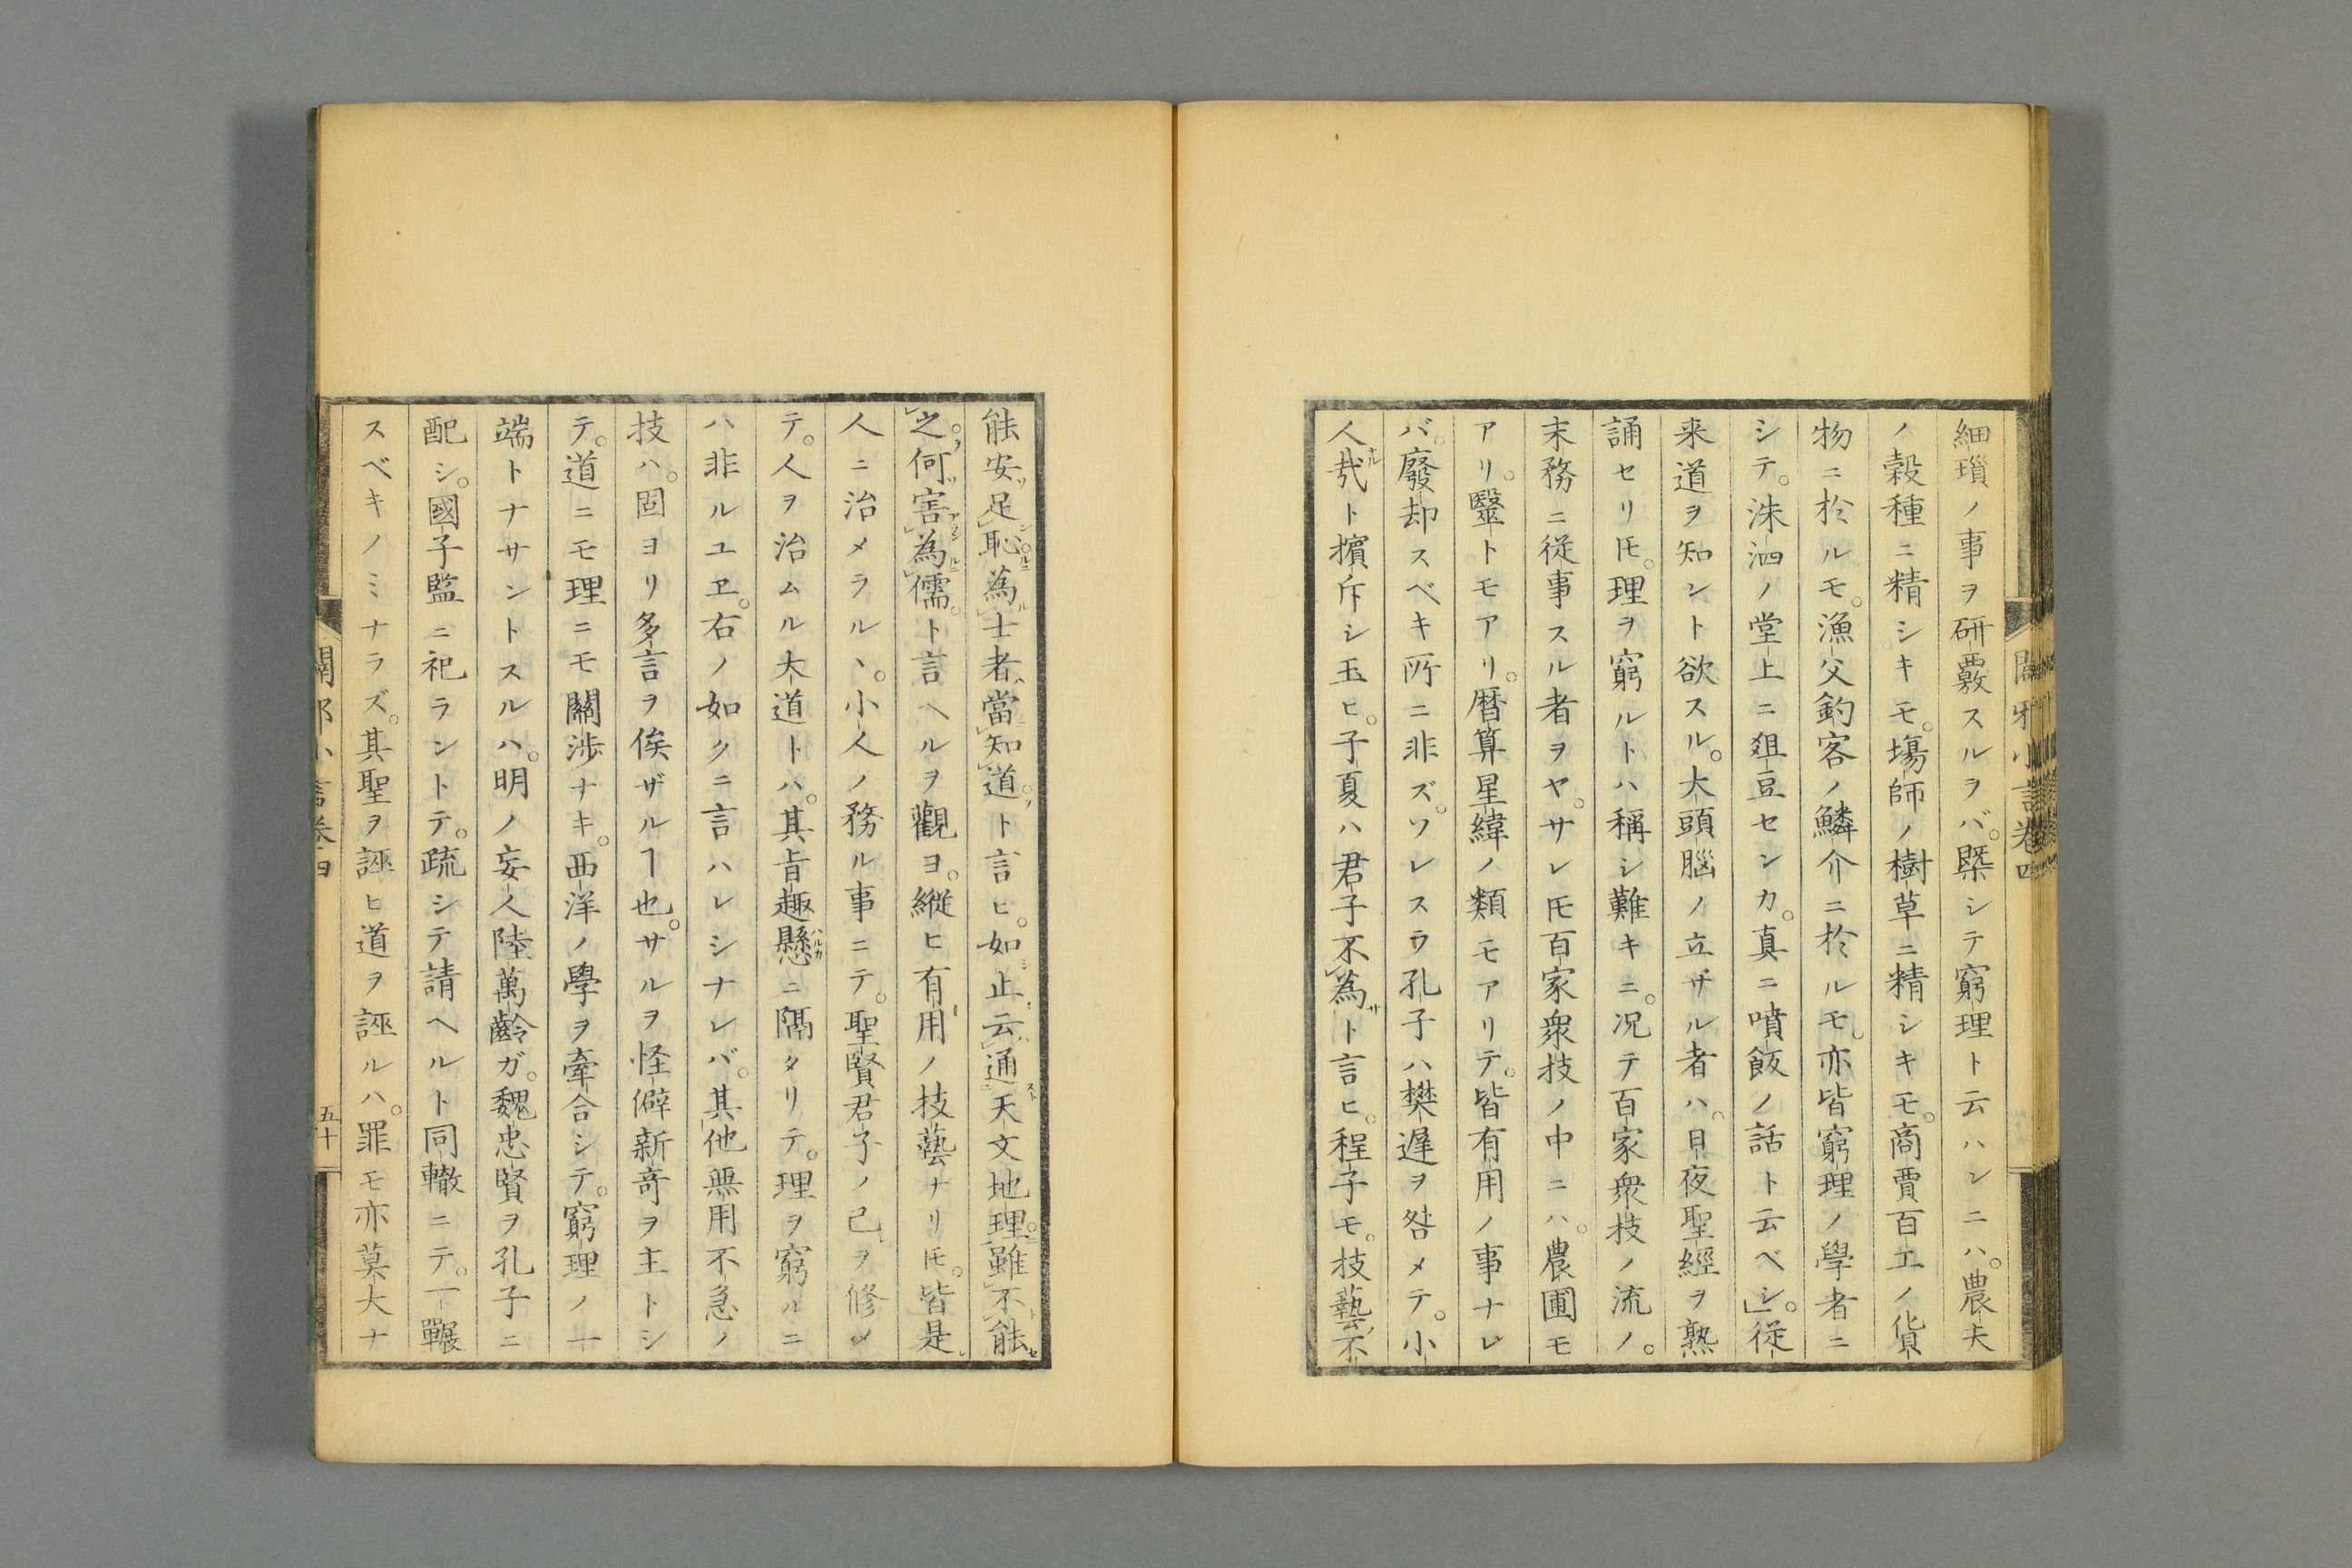 細瑣ノ事ヲ研覈スルヲバ。槩シテ窮理ト云ハンニハ。農夫
ノ穀種ニ精シキモ。塲師ノ樹草ニ精シキモ。商賈百工ノ貨
物ニ於ルモ。漁父釣客ノ鱗介ニ於ルモ。亦皆窮理ノ學者ニ
シテ。洙泗ノ堂上ニ俎豆センカ。真ニ噴飯ノ話ト云ベシ。」從
来道ヲ知ント欲スル。大頭腦ノ立ザル者ハ。日夜聖經ヲ熟
誦セリ𪜈。理ヲ窮ルトハ稱シ難キニ。况テ百家衆技ノ流ノ。
末務ニ從事スル者ヲヤ。サレ𪜈百家衆技ノ中ニハ。農圃モ
アリ。醫トモアリ。暦算星緯ノ類モアリテ。皆有用ノ事ナレ
バ。廢却スベキ所ニ非ズ。ソレスラ孔子ハ樊遲ヲ咎メテ。小
人ナル哉ト擯斥シ玉ヒ。子夏ハ君子不為サト言ヒ。程子モ。技藝不
能安足恥。為士者當知道ト言ヒ。如止云通天文地理雖不能
之何害為儒ト言ヘルヲ觀ヨ。縱ヒ有用ノ技藝ナリ𪜈。皆是
人ニ治メラルヽ。小人ノ務ル事ニテ。聖賢君子ノ己ヲ修メ
テ。人ヲ治ムル大道トハ。其旨趣懸ハルカニ隔タリテ。理ヲ窮ルニ
ハ非ルユヱ。右ノ如クニ言ハレシナレバ。其他無用不急ノ
技ハ。固ヨリ多言ヲ俟ザルヿ也。サルヲ怪僻新奇ヲ主トシ
テ。道ニモ理ニモ關渉ナキ。西洋ノ學ヲ牽合シテ。窮理ノ一
端トナサントスルハ。明ノ妄人陸萬齡ガ。魏忠賢ヲ孔子ニ
配シ。國子監ニ祀ラントテ。疏シテ請ヘルト同轍ニテ。一囅
スベキノミナラズ。其聖ヲ誣ヒ道ヲ誣ルハ。罪モ亦莫大ナ
闢邪小言卷四
五十